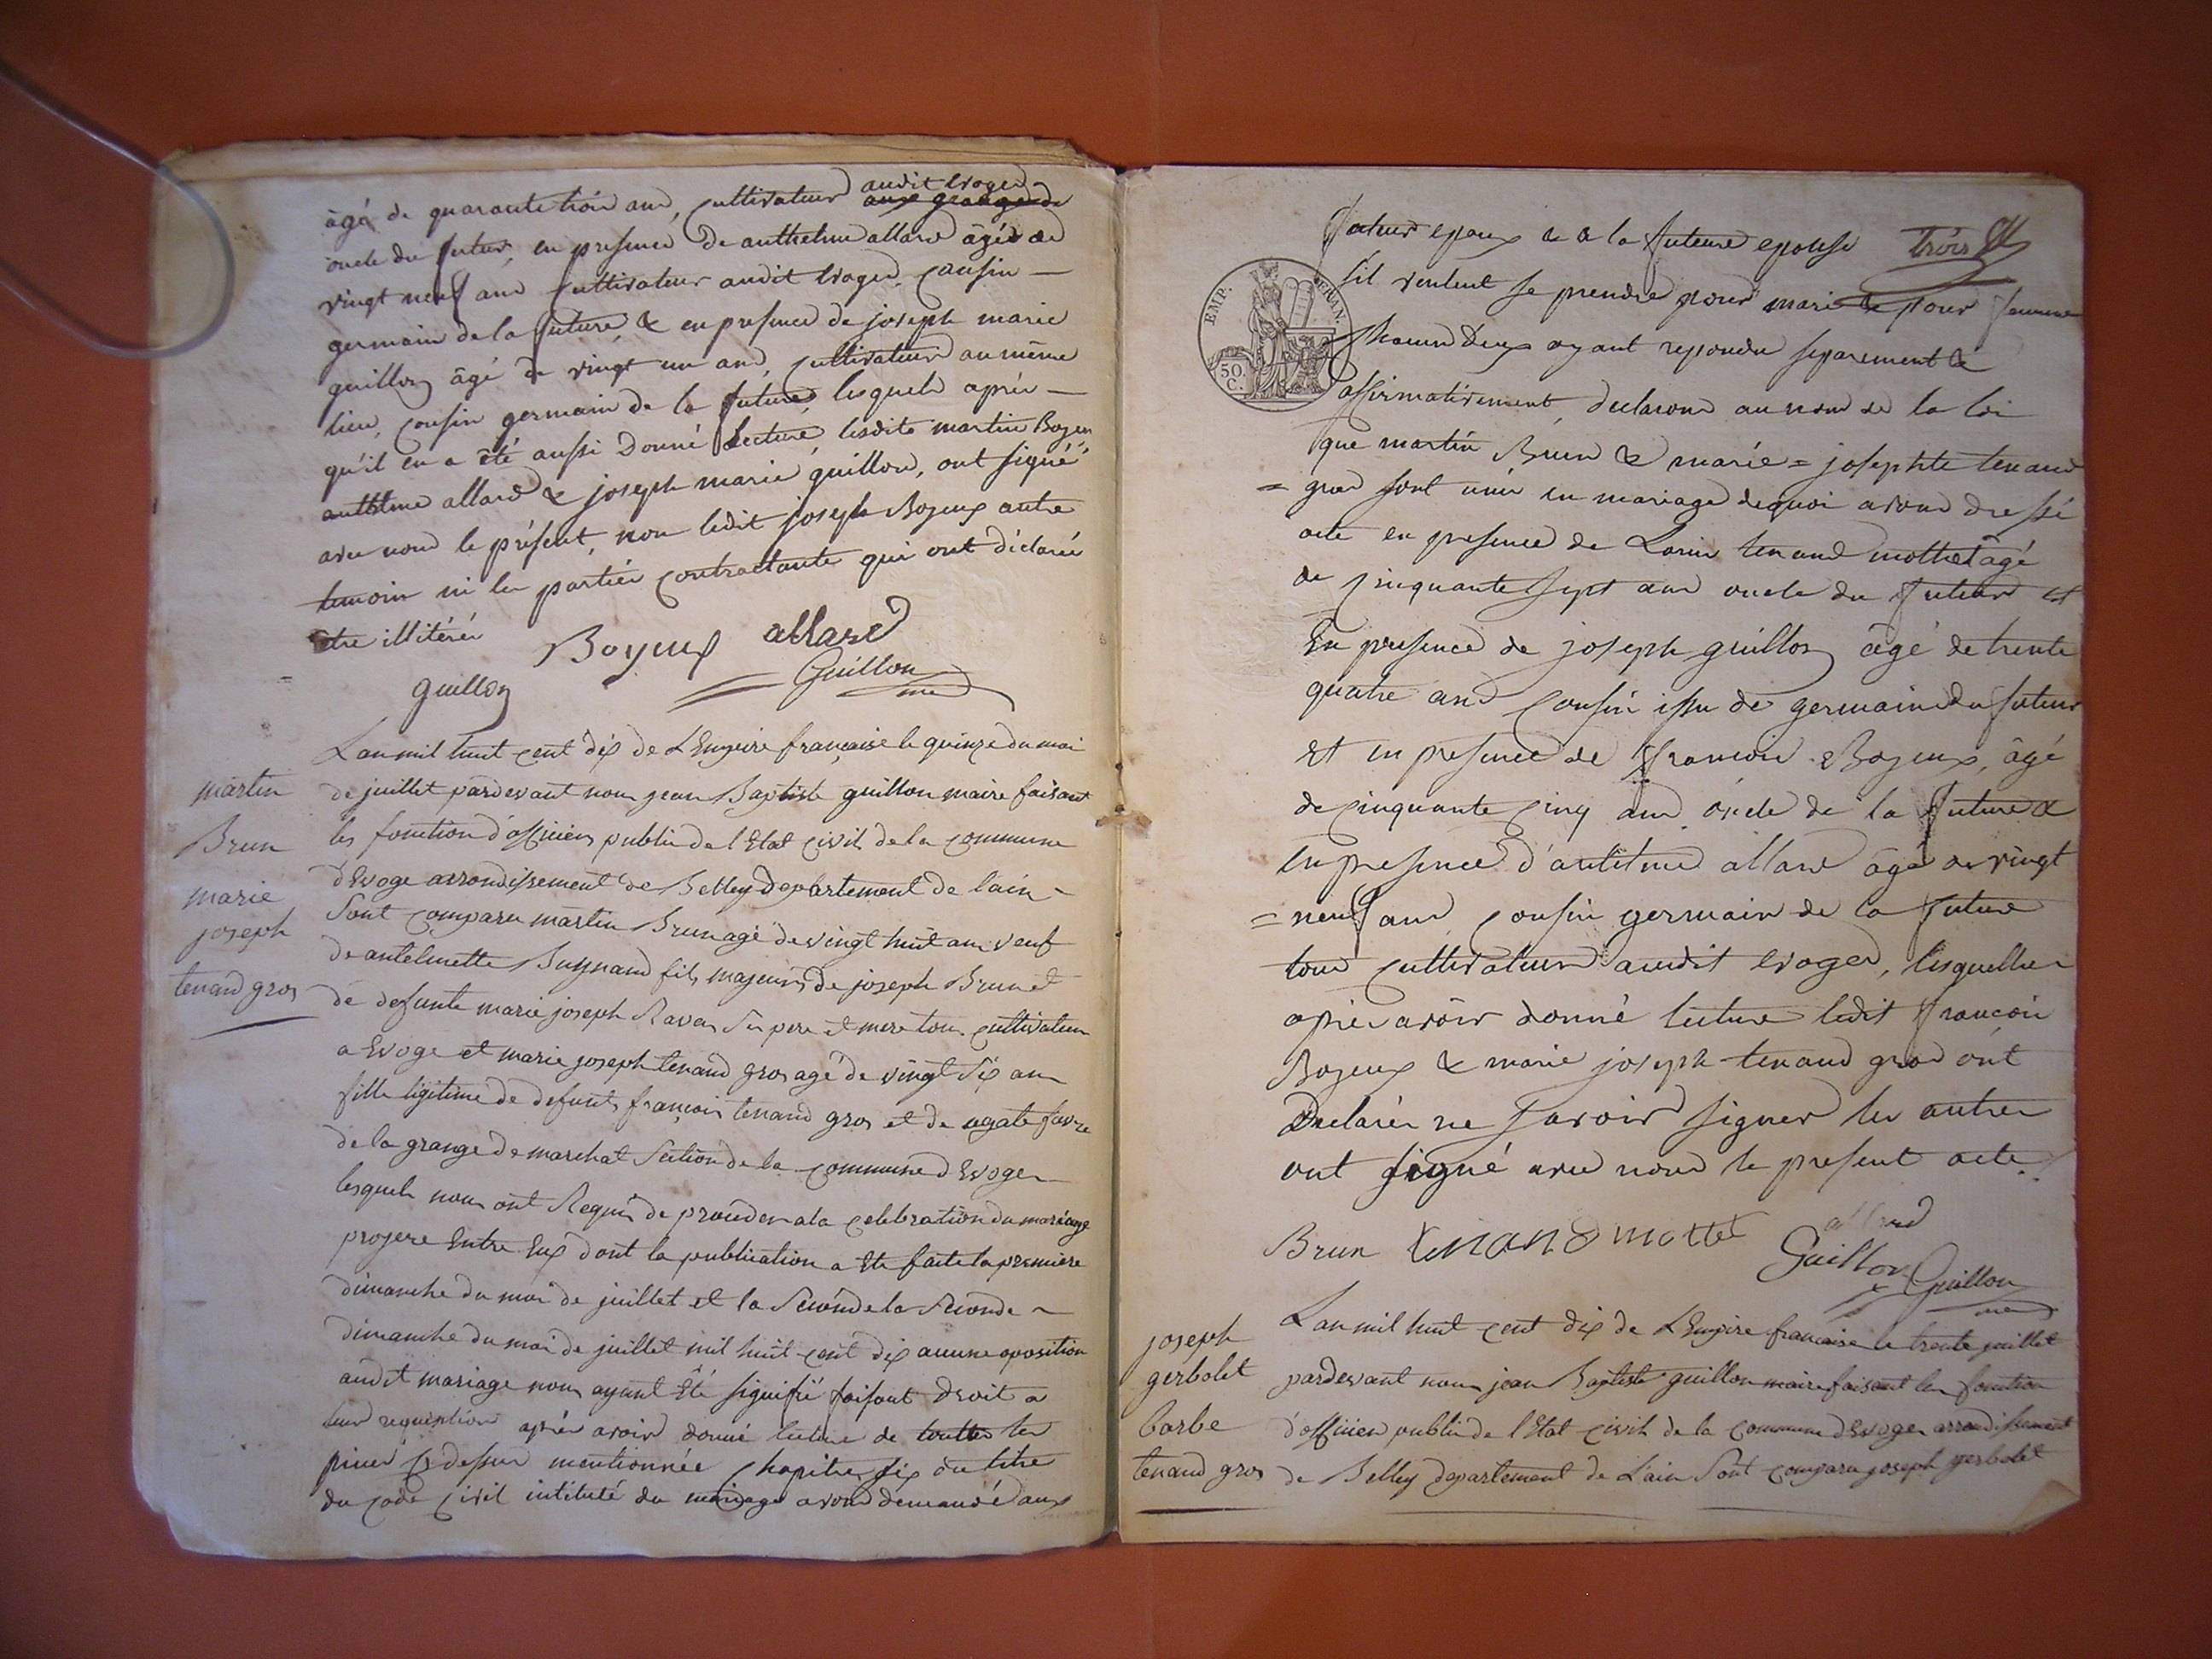 âgé de quarante trois ans, cultivateur audit Evoges
aux granges de
oncle du futur, en presence de anthelme allard âgée de
vingt neuf ans cultivateur audit Evoges, Cousin
germain de la future, & en presence de joseph marie
guillon âgé de vingt un ans, cultivateur au même
lieu, cousin germain de la future, lesquels après
qu'il en a été aussi donné Lecture, lesdits martin Boyeux
anthelme allard & joseph marie guillon, ont signé
avec nous le présent, non ledit joseph Boyeux autre
temoin ni les parties contractante qui ont déclarées
etre illitérés
Boyeux allard
Guillon
guillon
martin
Brun
marie
joseph
tenand gros
L an mil huit cent dix de L Empire française le quinze du moi
de juillet pardevant nous jean Baptiste guillon maire faisant
les fonction d'officiers public de l'Etat Civil de la Commune
d'Evoge arrondissement de Belley departement de l'ain
Sont Comparu martin Brun agé de vingt huit ans veuf
de antelmette Buynand fils majeurs de joseph Brun et
de defunte marie joseph Ravet Ses pere et mere tous cultivateur
a Evoge et marie joseph tenand gros agé de vingt Six ans
fille ligitime de defunts françois tenand gros et de agate favre
de la grange de marchat Section de la Commune d Evoges
lesquels nous ont Requis de proceder a la celebration du mariage
projere Entre Eux dont la publication a Ete faite la premiere
dimanche du moi de juillet et la Seconde la Seconde
dimanche du moi de juillet mil huit cent dix aucune oposition
audit mariage nous ayant Eté signifié faisant droit a
leur requisition après avoir donné lecture de toutes les
pieces ci dessus mentionnées Chapitre six du titre
du Code Civil intitulé du mariage avons demandé aux
EMP. FRAN.
50.
C.
futur epoux & a la future epouse Trois
s'il veulent se prendre pour mari & pour femme
Chacun d'eux ayant repondu separement &
affirmativement, declarons au nom de la loi
que martin Brun & marie = josephte tenand
= gros sont unis en mariage dequoi avons dressé
acte en presence de Louis tenand mottet âgé
de cinquante sept ans oncle du futur et
En presence de joseph guillon âgé de trente
quatre ans Cousin issu de germain du futur
et en presence de François Boyeux, âgé
de cinquante cinq ans oncle de la future &
en presence d'antelme allard âgé de vingt
= neuf ans Cousin germain de la future
tous cultivateurs audit Evoges, lesquelles
après avoir donné lecture ledit françois
Boyeux & marie joseph tenand gros ont
Declarés ne savoir signer les autres
ont signé avec nous le present acte.
Brun tenand mottet allard
Guillon Guillon
joseph
gerbolet
barbe
tenand gros
L an mil huit cent dix de L Empire française le trente juillet
pardevant nous jean Baptiste guillon maire faisant les fonction
d'officiers public de l'Etat Civil de la Commune d Evoges arrondissement
de Belley departement de L'ain Sont Comparu joseph gerbolet